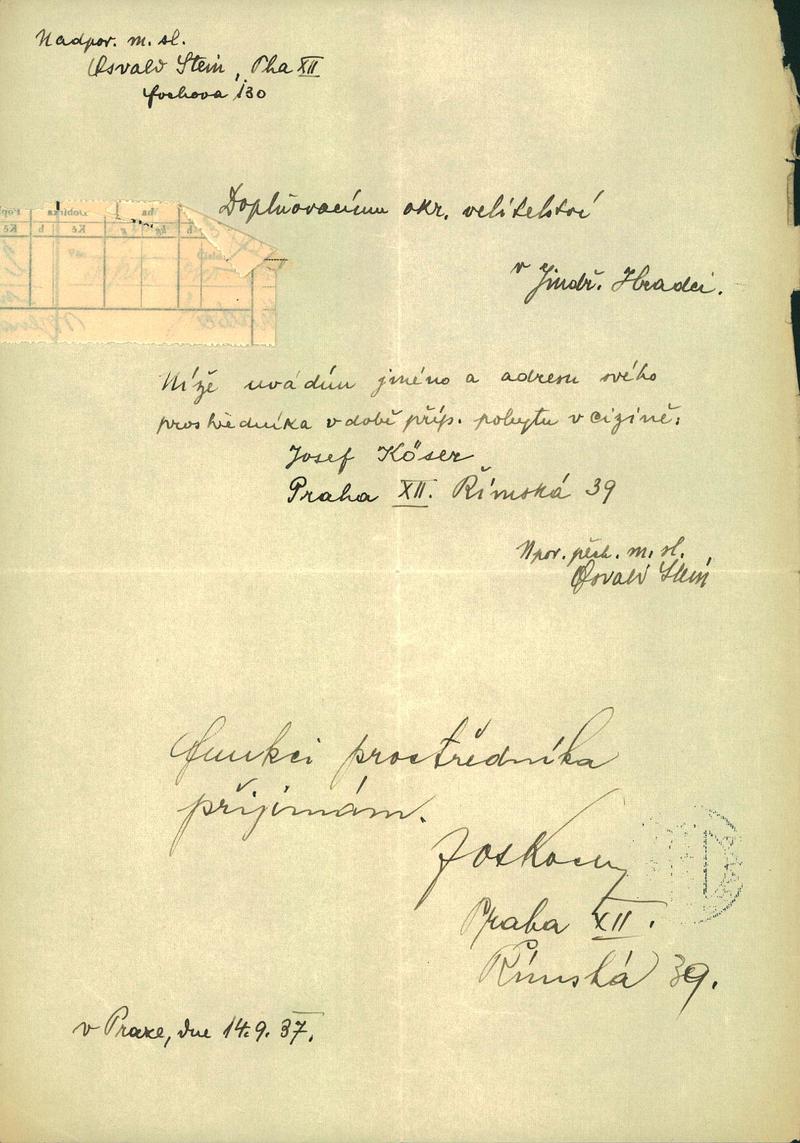 Nadpor. m. sl.
Osvald Stein, Pha XII
Fochova 130
Doplňovacímu okr. velitelství
v Jindř. Hradci.
Níže uvádím jméno a adresu svého
prostředníka v době příp. pobytu v cizině:
Josef Köser
Praha XII. Římská 39
Npor. pěch. m. sl.
Osvald Stein
funkci prostředníka
přijímám.
Praha XII.
Římská 39.
v Praze, dne 14.9.37.